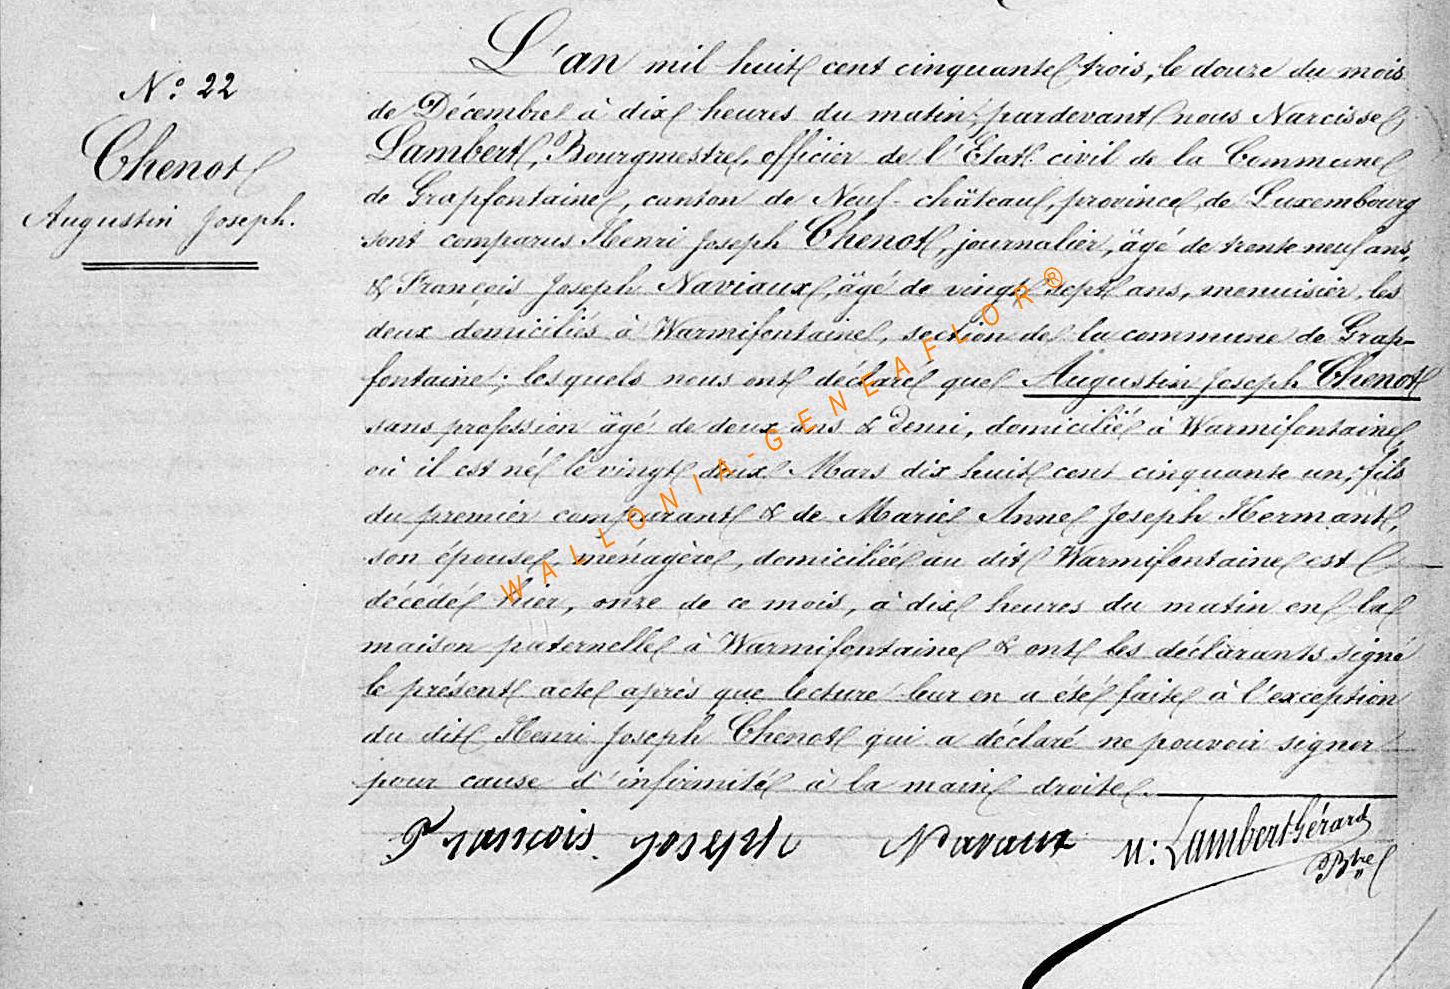 N.o 22
Chenot
Augustin Joseph.
L'an mil huit cent cinquante trois, le douze du mois
de Décembre à dix heures du matin, pardevant nous Narcisse
Lambert, Bourgmestre, officier de l'Etat civil de la Commune
de Grapfontaine, canton de Neuf-château, province de Luxembourg
sont comparus Henri Joseph Chenot, journalier, âgé de trente neuf ans,
& François Joseph Naviaux, âgé de vingt sept ans, menuisier, les
deux domiciliés à Warmifontaine, section de la commune de Grap-
fontaine; lesquels nous ont déclaré que Augustin Joseph Chenot
sans profession âgé de deux ans & demi, domicilié à Warmifontaine
où il est né le vingt deux Mars dix huit cent cinquante un, fils
du premier comparant & de Marie Anne Joseph Hermant,
son épouse, ménagère, domiciliée au dit Warmifontaine est
décédé hier, onze de ce mois, à dix heures du matin en la
maison paternelle à Warmifontaine & ont les déclarants signé
le présent acte après que lecture leur en a été faite à l'exception
du dit Henri Joseph Chenot qui a déclaré ne pouvoir signer
pour cause d'infirmité à la main droite.
François Joseph Navaux N: Lambert Gérard
Btre
WALLONIA-GENEAFLOR®